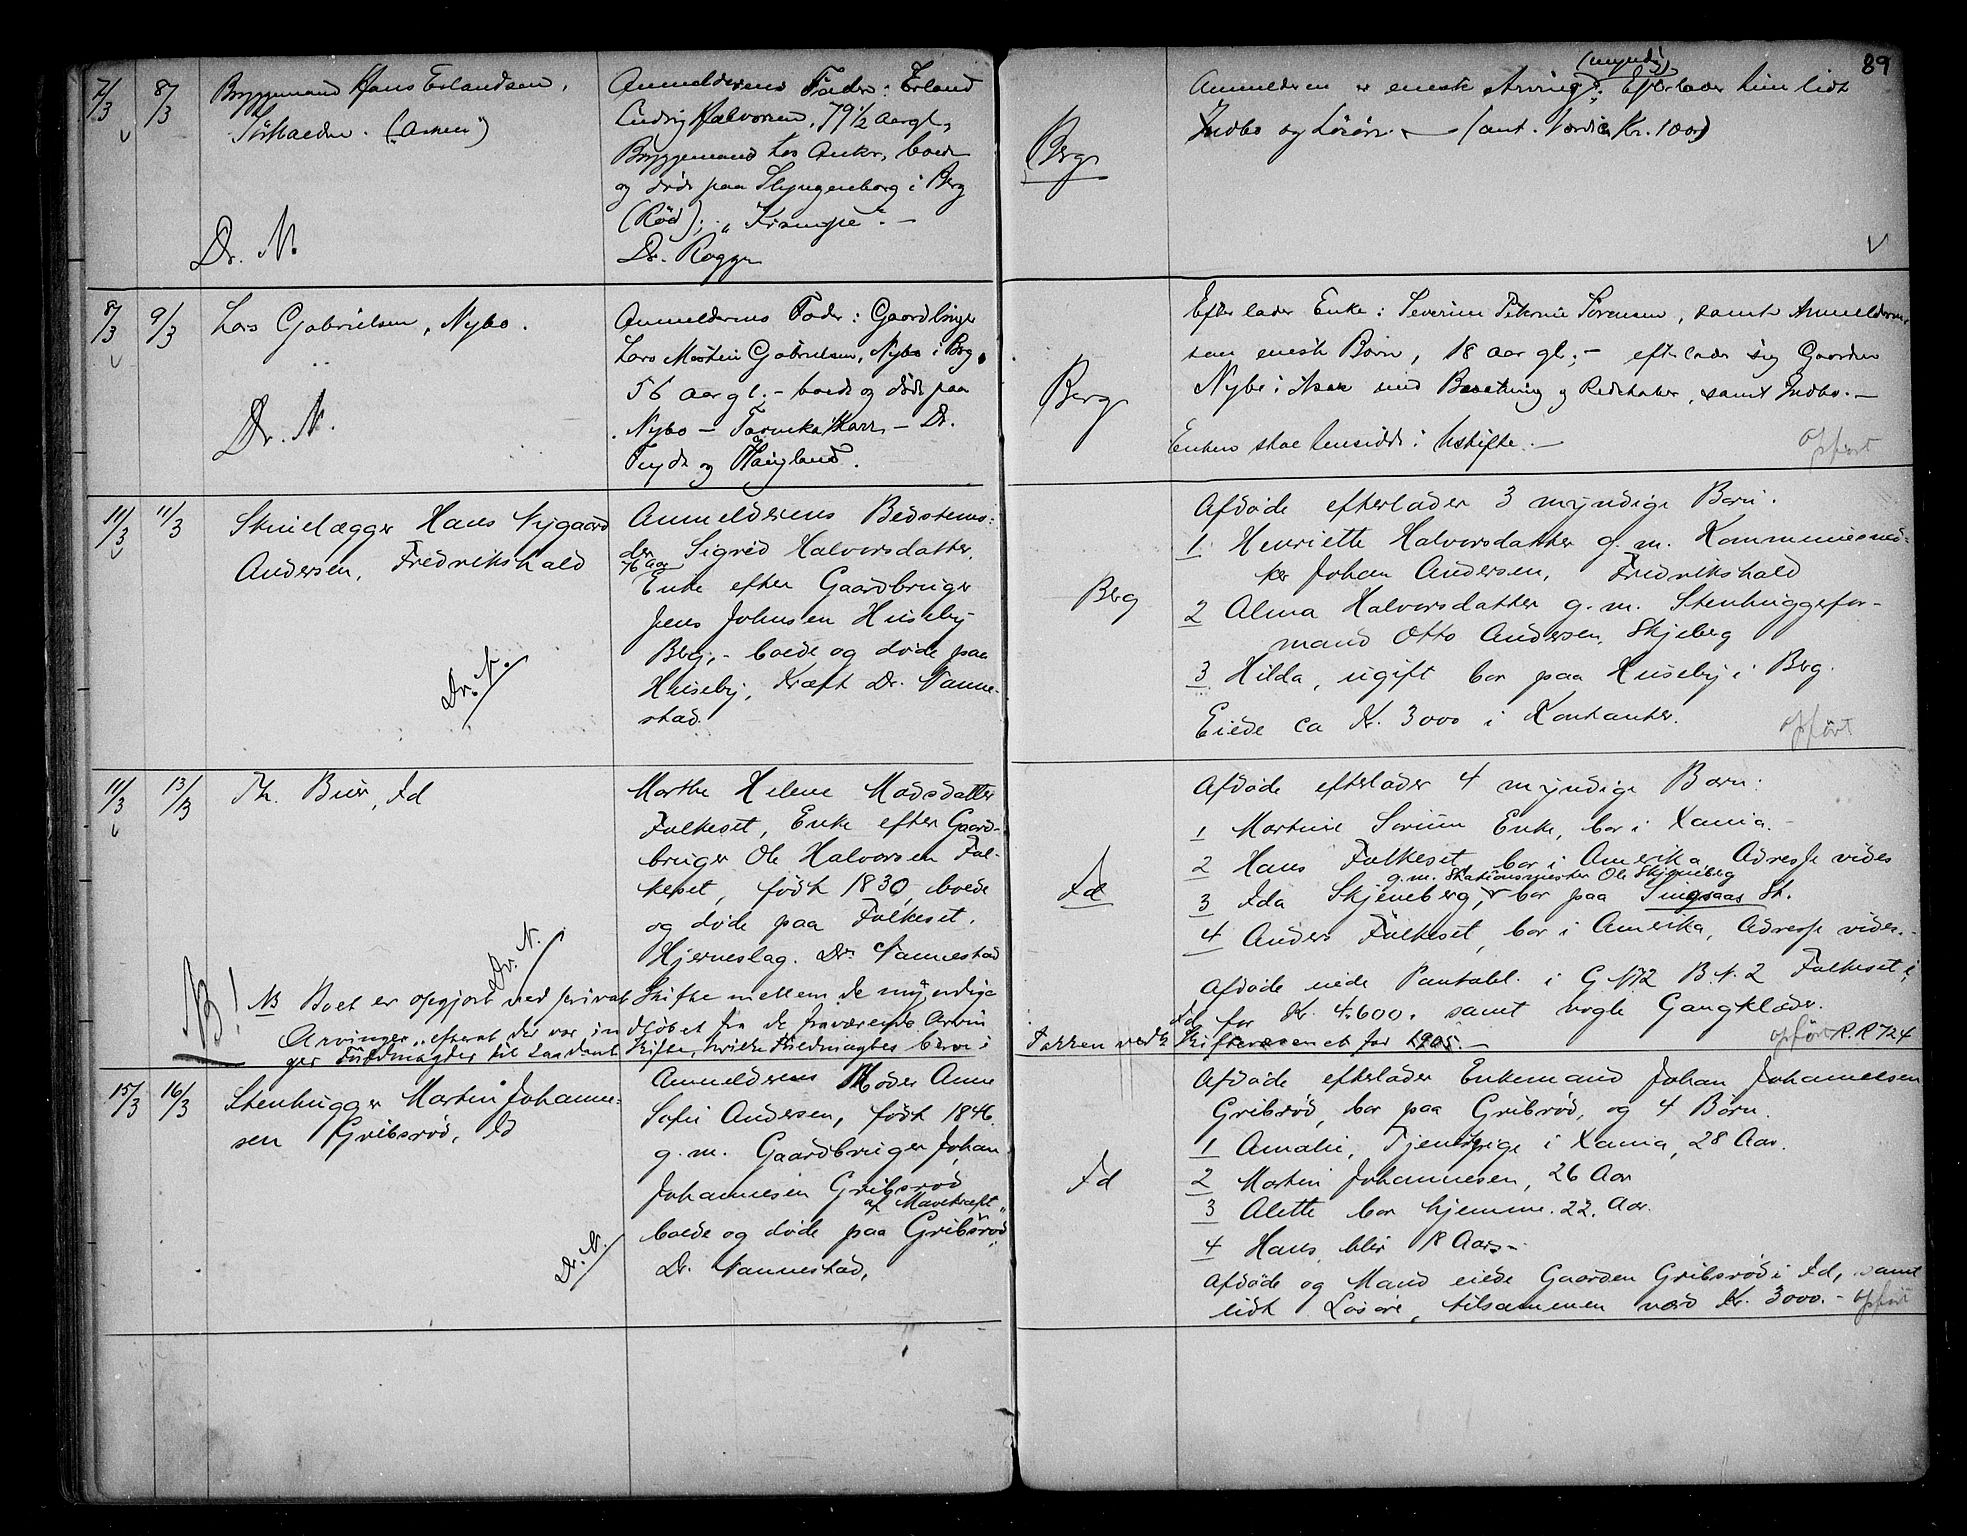 89
7/3 8/3 Bryggemand Hans Erlandsen,
("Asken")
Dr. N.
Anmelderens Fader: Erland
Ludvig Halvorsen, 79 1/2 Aar gl.,
Bryggemand hos Anker, boede
og døde paa Slyngenborg i Berg
(Rød); "Krampe". —
Dr. Rogge
Berg
(myndig)
Anmelderen er eneste Arving; Efterlader kun lidt
Indbo og Løsøre. — (ant. Værdi Kr. 100)
8/3 9/3 Lars Gabrielsen, Nybo.
Dr. N.
Anmelderens Fader: Gaardbruger
Lars Martin Gabrielsen, Nybo i Berg,
56 Aar gl. — boede og døde paa
Nybo — — Dr.
og
Berg
Efterlader Enke: Severine Petrine Sørensen, samt Anmelderen
som eneste Barn, 18 Aar gl; — efterlader sig Gaarden
Nybo i med Besætning og Redskaber, samt Indbo. —
Enken skal hensidde i Uskifte. —
opført
11/3 11/3 Skindlægger Hans Nygaard
Andersen, Fredrikshald
Dr. N.
Anmelderens Bedstemo-
der Sigrid Halvorsdatter,
76 Aar
Enke efter Gaardbruger
Jens Johnsen Huseby
Berg, - boede og døde paa
Huseby, Kræft Dr. Nanne-
stad.
Berg
Afdøde efterlader 3 myndige Børn.
1 Henriette Halvorsdatter g. m. Kommissnæd-
ker Johan Andersen, Fredrikshald
2 Alma Halvorsdatter g. m. Stenhuggefor-
mand Otto Andersen, Skjeberg
3 Hilda, ugift bor paa Huseby i Berg.
Eiede ca Kr. 3000 i Kontanter.
opført
11/3 13/13 Th. Buer, Id
Dr. N.
Marthe Helene Madsdatter
Folkeset, Enke efter Gaard-
bruger Ole Halvorsen Fol-
keset, født 1830, boede
og døde paa Folkeset.
Hjerneslag. Dr. Nannestad
Id
Afdøde efterlader 4 myndige Børn:
1 Martine Sørum Enke, bor i Xania. -
2 Hans Folkeset, bor i Amerika, Adresse vides
g. m. Stationsmester Ole Skjeneberg
3 Ida Skjeneberg, bor paa Singsaas St.
4 Anders Folkeset, bor i Amerika, Adresse vides. -
Afdøde eiede Pantobl. i G. N 72 B. N. 2 Folkeset i
Id for Kr. 4600. samt nogle Gangklæder.
opført R. R 724
NB! NB Boet er opgjort ved privat Skifte mellem de myndige
Arvinger, efterat der var indløbet fra de fraværende Arvin
ger Fuldmagter til saadant Skifte, hvilke Fuldmagter bero i
Pakken vedk Skiftevæsenet for 1905. —
15/3 16/3 Stenhugger Martin Johanne-
sen Gribsrød, Id
Dr. N.
Anmelderens Moder Anne
Sofie Andersen, født 1846.
g. m. Gaardbruger Johan
Johannesen Gribsrød
af Mavekræft
boede og døde paa Gribsrød
Dr. Nannestad.
Id
Afdøde efterlader Enkemand Johan Johannesen
Gribsrød, bor paa Gribsrød, og 4 Børn.
1 Amalie, Tjenestepige i Xania, 28 Aar.
2 Martin Johannesen, 26 Aar
3 Alette bor hjemme. 22. Aar.
4 Hans, blir 18 Aar. -
Afdøde og Mand eiede Gaarden Gribsrød i Id, samt
lidt Løsøre, tilsammen værd Kr. 3000. - opført